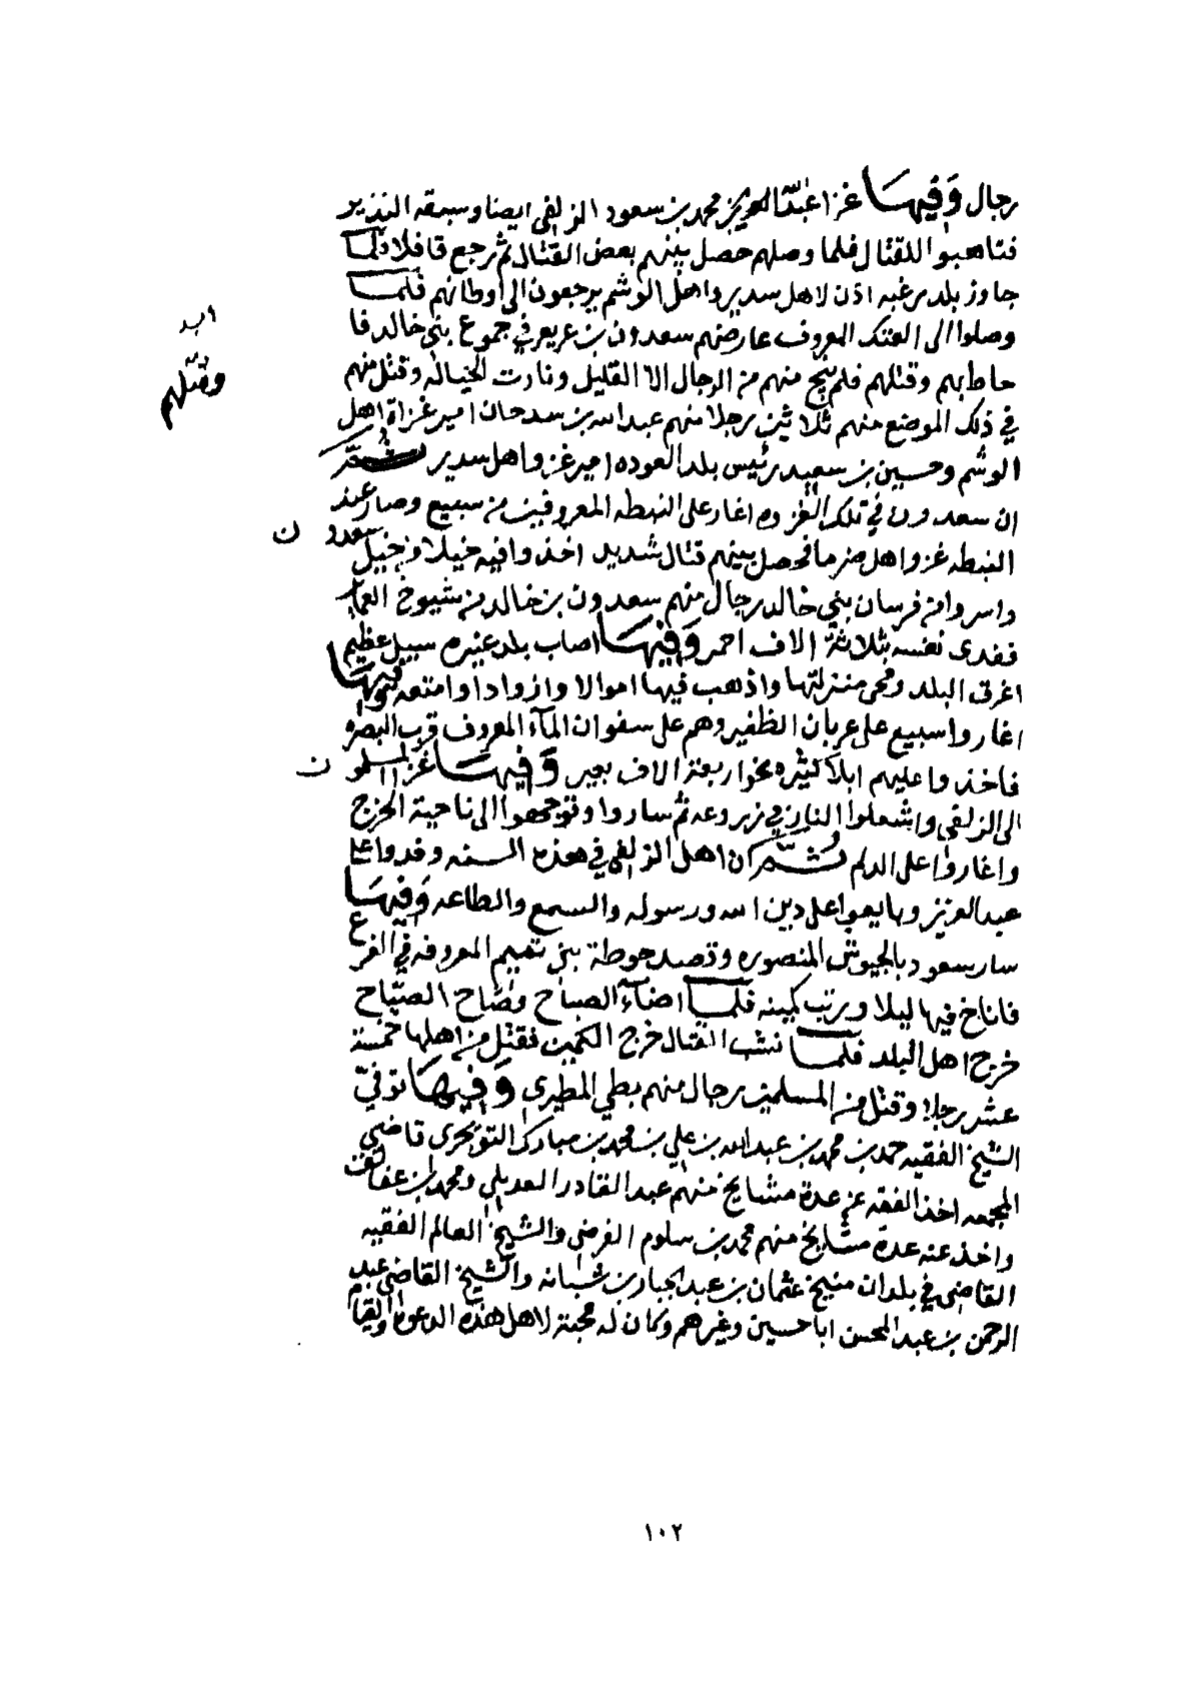 رجال وفيها غزا عبد العزيز محمد بن سعود الزلفى ايضا وسبقه النذير
فتاهبوا للقتال فلما وصلهم حصل بينهم بعض القتال ثم رجع قافلا فلما
جاوز بلد رغبه اذن لاهل سدير واهل الوشم يرجعون الى اوطانهم فلما
وصلوا الى العتك المعروف عارضهم سعدون بن عريعر في جموع بني خالد فا
حاط بهم وقتلهم فلم ينج منهم من الرجال الا القليل ونارت الخياله وقتل منهم
في ذلك الموضع منهم ثلاثين رجلا منهم عبدالله بن سدحان امير غزاة اهل
الوشم وحسين بن سعيد رئيس بلد العوده امير غزو اهل سدير ثم
ان سعدون في تلك الغزوه اغار على النبطه المعروفين من سبيع وصار عند
النبطه غزو اهل ضرما فحصل بينهم قتال شديد اخذوا فيه خيلا من خيل سعدون
واسروا من فرسان بني خالد رجال منهم سعدون بن خالد من شيوخ العماير
ففدى نفسه بثلاثة الاف احمر وفيها اصاب بلد عنيزه سبيل عظيم
اغرق البلد ومحى منزلتها واذهب فيها اموالا وازوادا وامتعه وفيها
اغاروا سبيع على عربان الظفير وهم على سفوان المآء المعروف قرب البصره
فاخذوا عليهم ابلا كثيره نحو اربعة الاف بعير وفيها غزا المسلمون
الى الزلفى واشعلوا النار في زروعه ثم ساروا وتوجهوا الى ناحية الخرج
واغاروا على الدلم ثم ان اهل الزلفي في هذه السنه وفدوا على
عبدالعزيز وبايعوا على دين الله ورسوله والسمع والطاعه وفيها
سار سعود بالجيوش المنصوره وقصد حوطة بني تميم المعروفه في الفرع
فاناخ فيها ليلا ورتب كمينه فلما اضآء الصباح وصاح الصياح
خرج اهل البلد فلما نشب القتال خرج الكمين فقتل من اهلها خمسة
عشر رجلا وقتل من المسلمين رجال منهم بطي المطيرى وفيها توفي
الشيخ الفقيه حمد بن محمد بن عبدالله بن علي بن محمد بن مبارك التويجرى قاضي
المجمعه اخذ الفقه عن عدة مشايخ منهم عبد القادر العديلي ومحمد بن عفالق
واخذ عنه عدة مشايخ منهم محمد بن سلوم الفرضي والشيخ العالم الفقيه
القاضى في بلدان منيخ عثمان بن عبدالجبار بن شبانه والشيخ القاضى عبد
الرحمن بن عبد المحسن ابا حسين وغيرهم وكان له محبة لاهل هذه الدعوة والقيا
وقتلهم
١٠٢